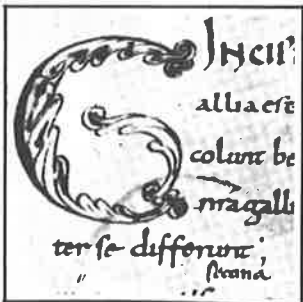 G INCIP
allia est
colunt be
nragalli
ter se differunt;
secuna